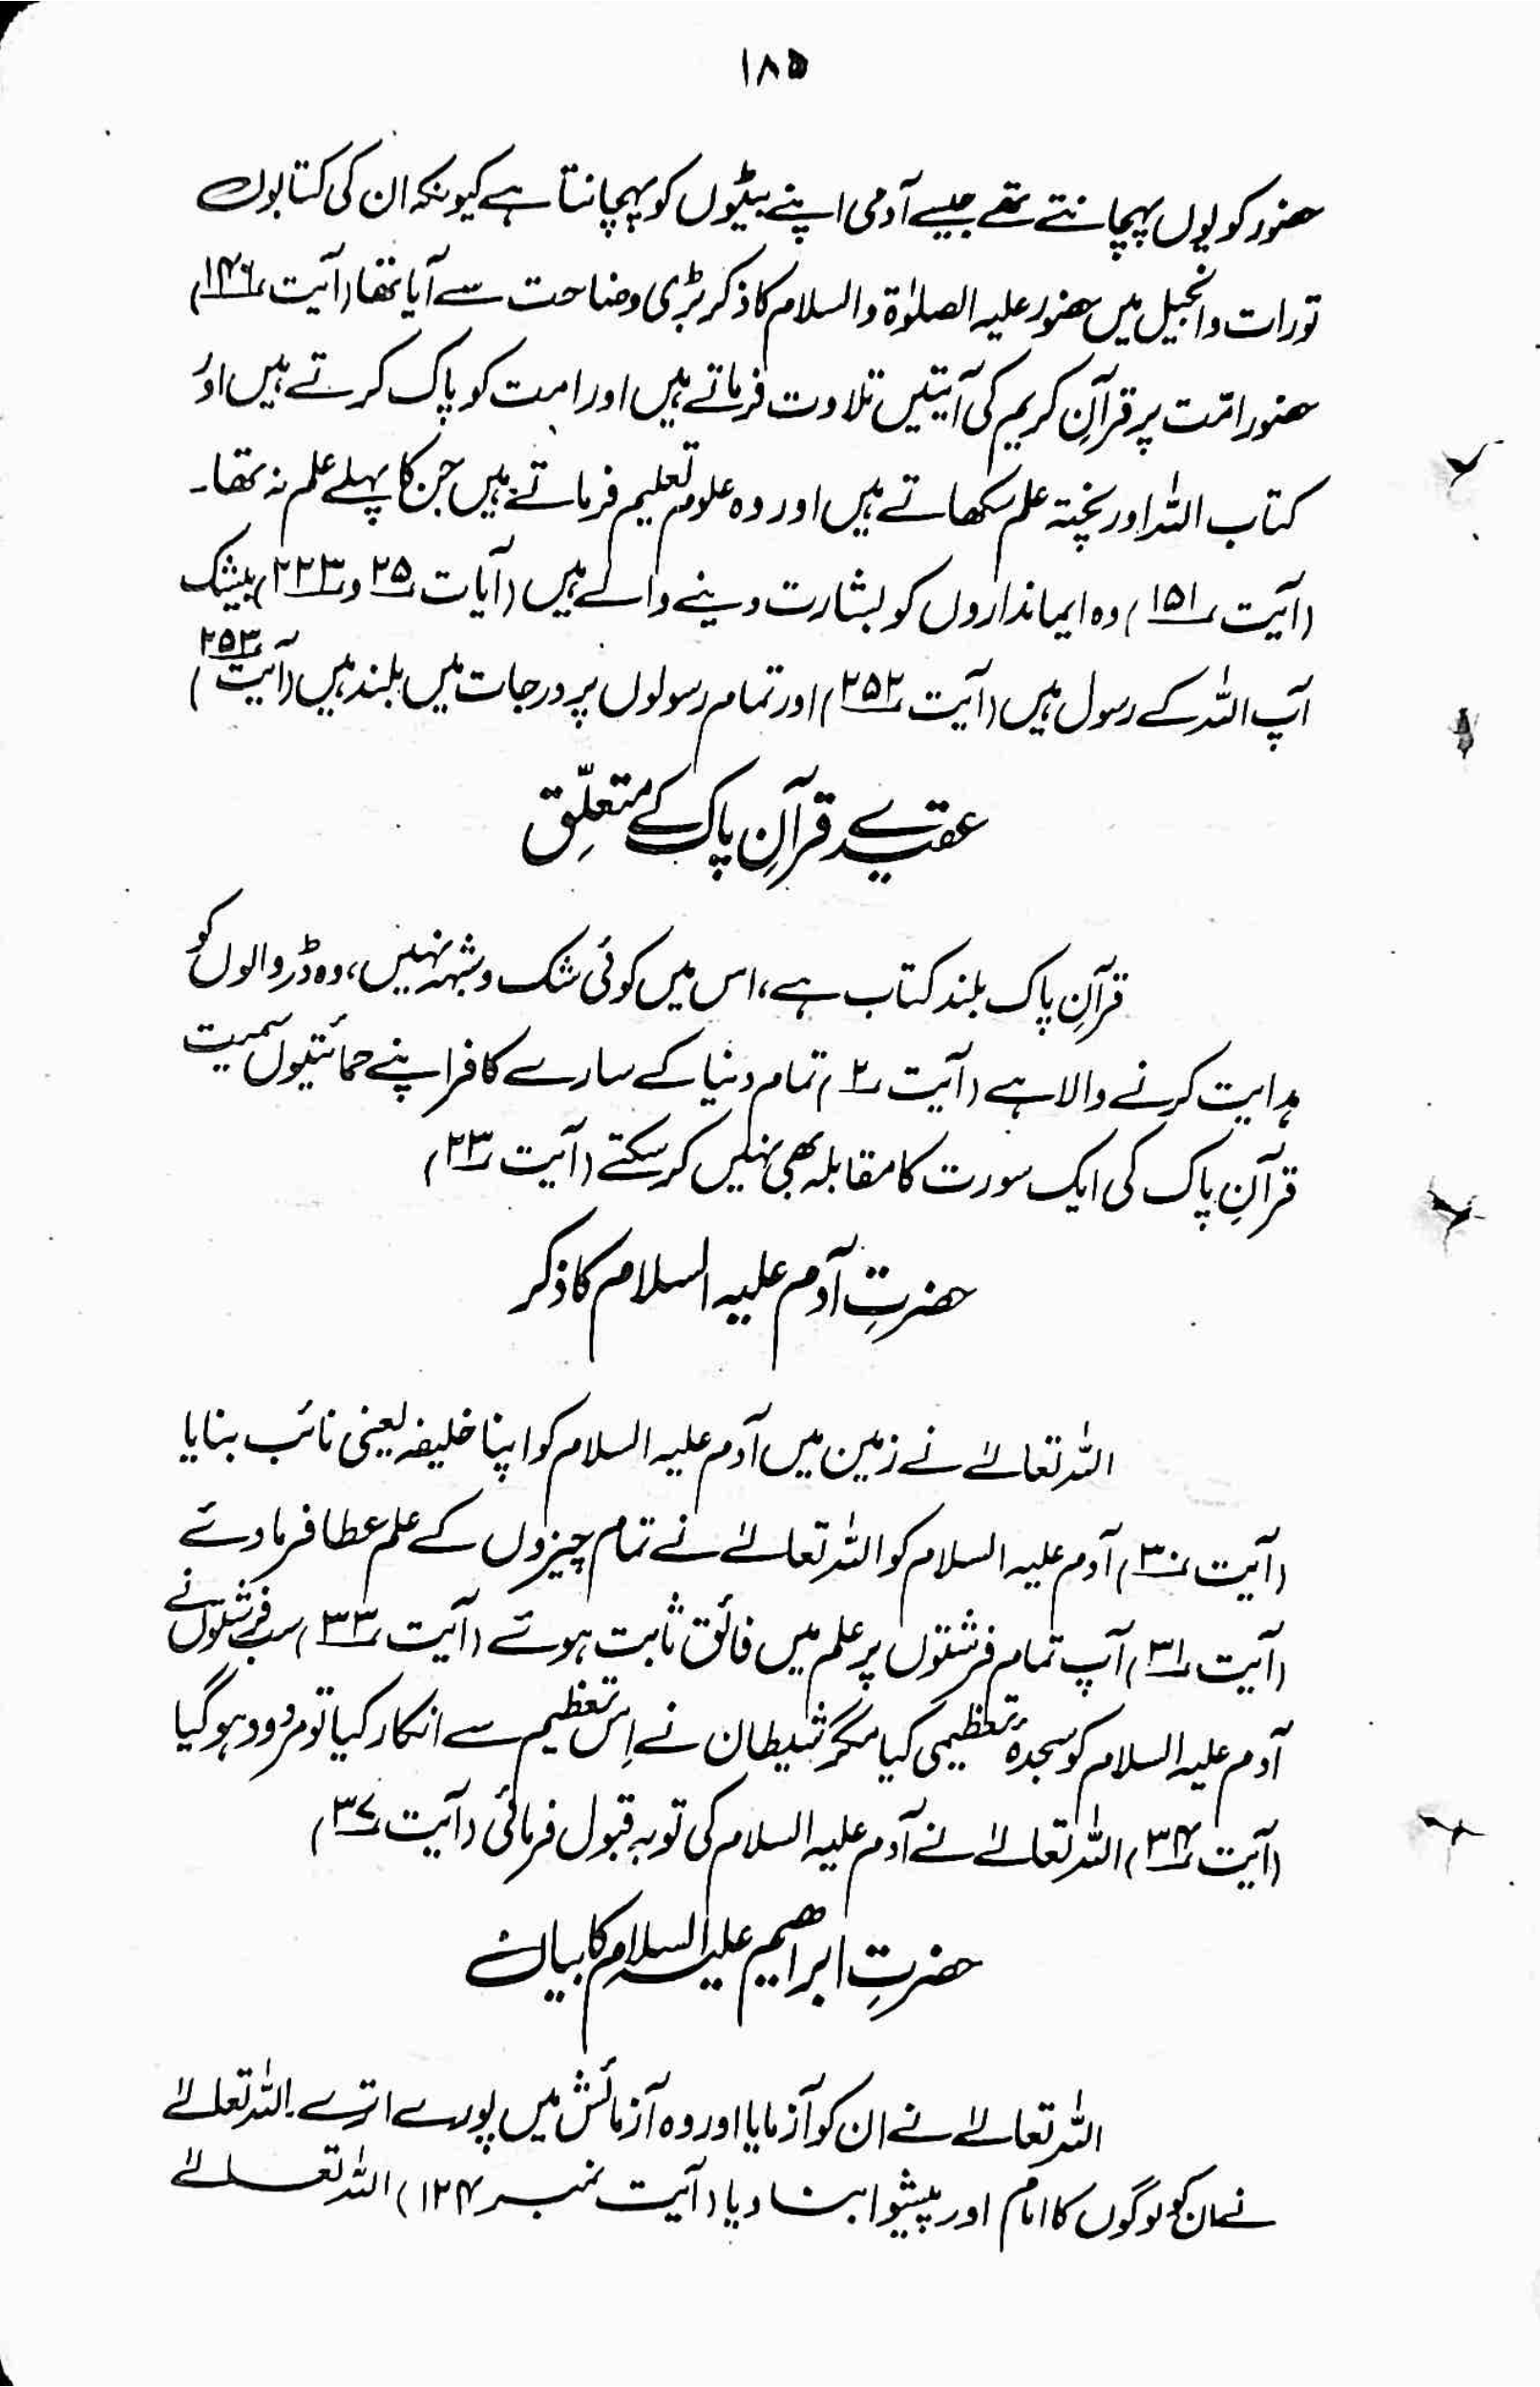 ۱۸۵
حضور کو یوں پہچانتے تھے جیسے آدمی اپنے بیٹوں کو پہچانتا ہے کیونکہ ان کی کتابوں
تورات وانجیل میں حضور علیہ الصلوٰۃ والسلام کا ذکر بڑی وضاحت سے آیا تھا (آیت ۱۴۶)
حضور امّت پر قرآنِ کریم کی آیتیں تلاوت فرماتے ہیں اور امت کو پاک کرتے ہیں اور
کتاب اللہ اور پختہ علم سکھاتے ہیں اور وہ علوم تعلیم فرماتے ہیں جن کا پہلے علم نہ تھا۔
(آیت ۱۵۱) وہ ایمانداروں کو بشارت دینے والے ہیں (آیات ۲۵ و ۲۲۳) بیشک
آپ اللہ کے رسول ہیں (آیت ۲۵۲) اور تمام رسولوں پر درجات میں بلند ہیں (آیت ۲۵۳)
عقیدے قرآنِ پاک کے متعلّق
قرآنِ پاک بلند کتاب ہے، اس میں کوئی شک و شبہہ نہیں، وہ ڈر والوں کو
ہدایت کرنے والا ہے (آیت ۲) تمام دنیا کے سارے کافر اپنے حمائتیوں سمیت
قرآنِ پاک کی ایک سورت کا مقابلہ بھی نہیں کر سکتے (آیت ۲۳)
حضرتِ آدم علیہ السلام کا ذکر
اللہ تعالےٰ نے زمین میں آدم علیہ السلام کو اپنا خلیفہ یعنی نائب بنایا
(آیت ۳۰) آدم علیہ السلام کو اللہ تعالےٰ نے تمام چیزوں کے علم عطا فرما دئے
(آیت ۳۱) آپ تمام فرشتوں پر علم میں فائق ثابت ہوئے (آیت ۳۳) سب فرشتوں نے
آدم علیہ السلام کو سجدۂ تعظیمی کیا مگر شیطان نے اِس تعظیم سے انکار کیا تو مردود ہو گیا
(آیت ۳۴) اللہ تعالےٰ نے آدم علیہ السلام کی توبہ قبول فرمائی (آیت ۳۷)
حضرتِ ابراھیم علیہ السلام کا بیان
اللہ تعالےٰ نے ان کو آزمایا اور وہ آزمائش میں پورے اترے۔ اللہ تعالےٰ
نے ان کو لوگوں کا امام اور پیشوا بنا دیا (آیت نمبر ۱۲۴) اللہ تعالےٰ